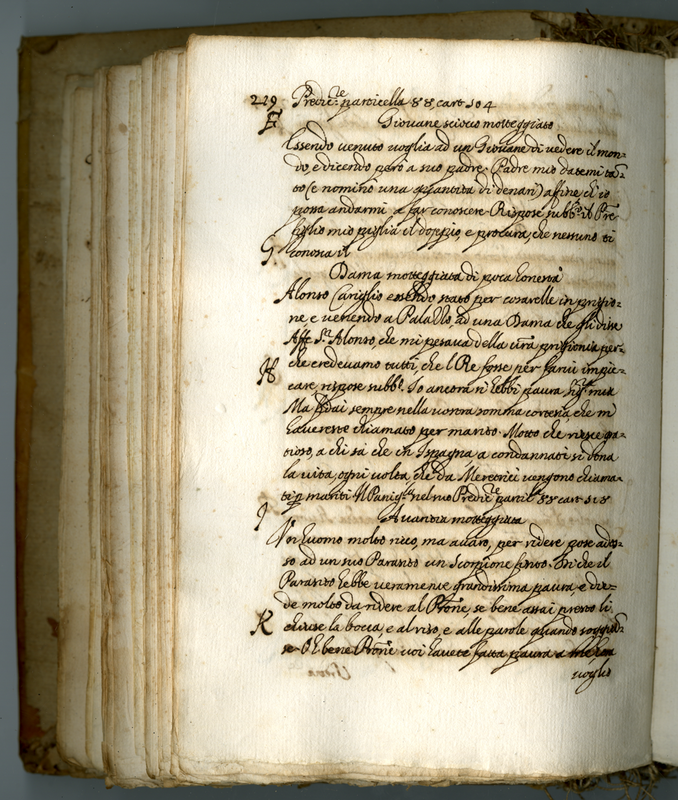 229 Predic:te particella 88, cart 504
F Giovane sciocco motteggiato
Essendo venuto voglia ad un Giovane di vedere il mon-
do, e dicendo però a suo padre. Padre mio datemi tā-
to (e nominò una quantità di denari) affine, ch'io
possa andarmi a far conoscere. Rispose subb:o il Pre
figlio mio piglia il doppio, e procura, che nessuno ti
G conosca il
Dama motteggiata di poca honestà
Alonso Cariglio essendo stato per cosarelle in prigio-
ne e venendo a Palazzo ad una Dama che gli disse
Affe Sr Alonso, che mi pesava della vrā prigionia per-
H che credevamo tutti, che l Re forse per farvi impic-
care rispose subb:o. Io ancora n'hebbi paura sigra mia
Ma sperai sempre nella vostra somma cortesia, che m'
havereste chiamato per marito. Motto che riesce gra-
tioso, a chi sà che in Ispagna a condannati si dona
la vita, ogni volta, che da Meretrici vengono chiama-
ti p mariti Il Panig:la nel suo Predic:te partic:la 88 cart 518
I Avaritia motteggiata
Un huomo molto ricco, ma avaro, per ridere pose ados-
so ad un suo Parasito un Scorpione finto. Sì che il
Parasito hebbe veramente grandissima paura e die-
de molto da ridere al Prōne, se bene assai presto li
K chiuse la bocca, e al riso, e alle parole quando soggiū-
se Oh bene Prōne voi havete fatta paura a me, io
voglio